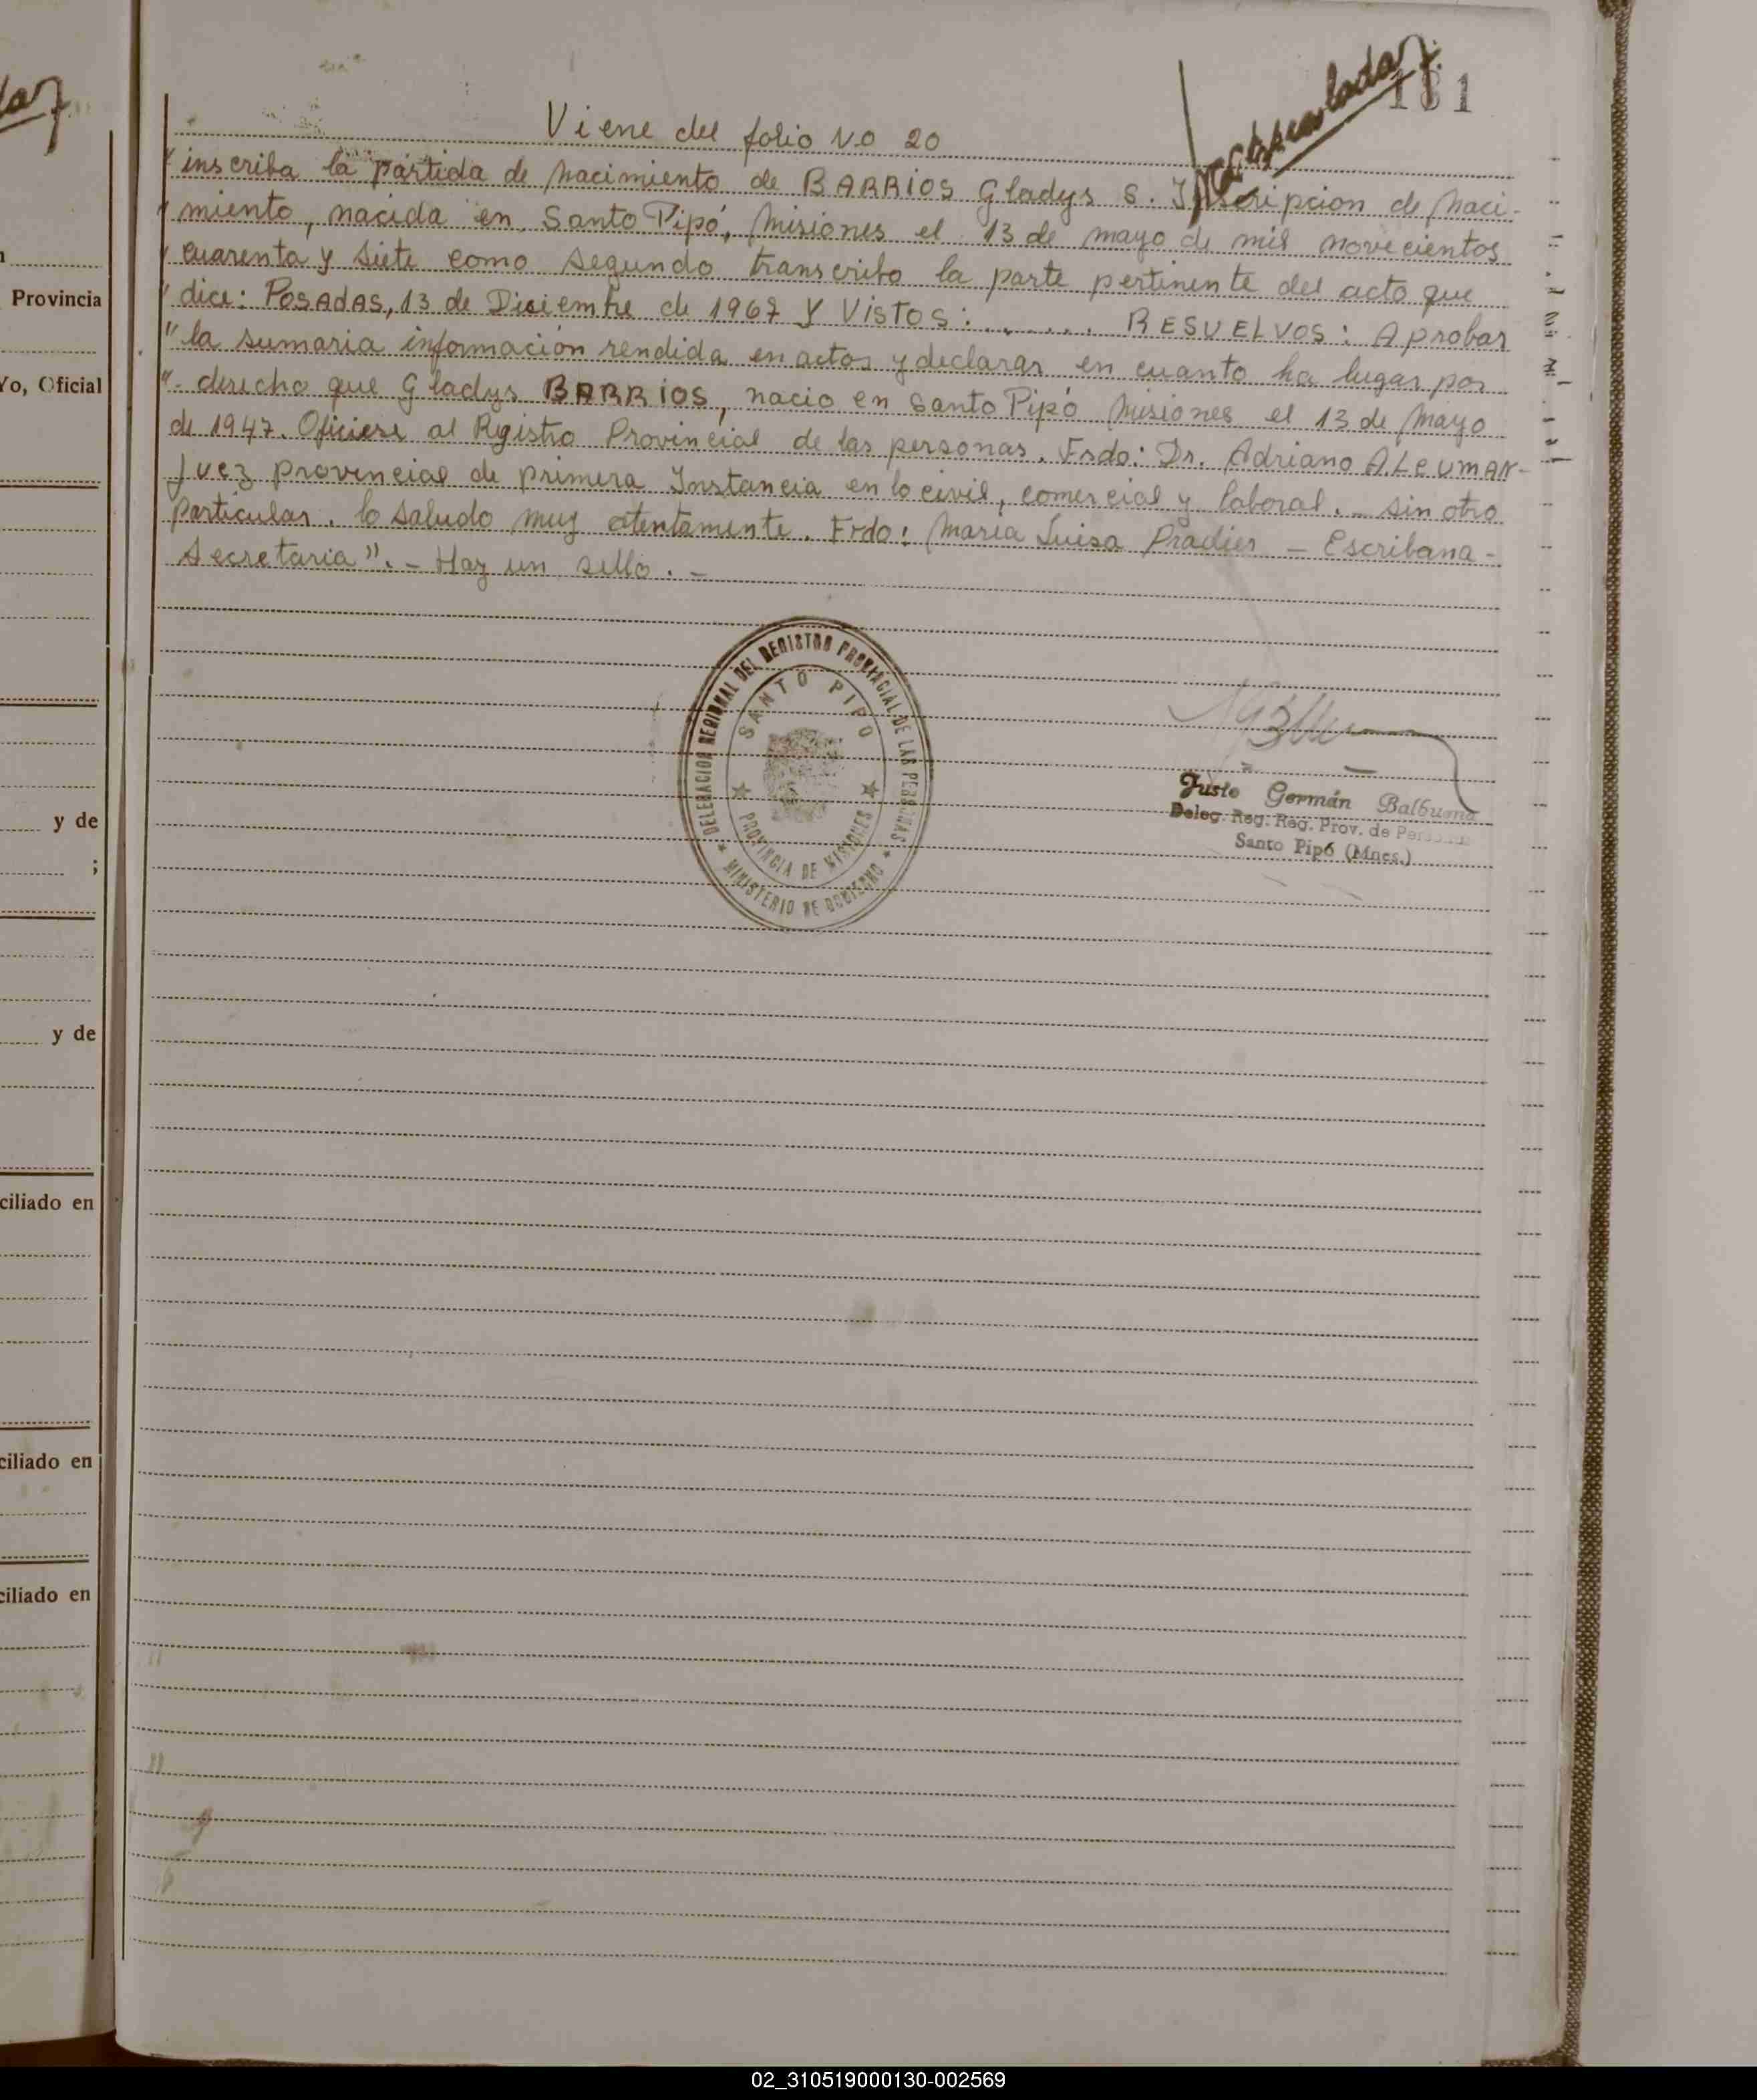 181
Matriculada
Viene del folio No 20
" inscriba la partida de Nacimiento de BARRIOS Gladys S. Inscripcion de Naci-
" miento, nacida en Santo Pipó, Misiones el 13 de mayo de mil novecientos
" cuarenta y siete como segundo transcribo la parte pertinente del acto que
" dice: POSADAS, 13 de Diciembre de 1967 Y VISTOS: ....... RESUELVOS: Aprobar
" la sumaria información rendida en actos y declarar en cuanto ha lugar por
" derecho que Gladys BARRIOS, nacio en Santo Pipó Misiones el 13 de Mayo
de 1947. Oficiese al Registro Provincial de las personas. Fsdo: Dr. Adriano
Juez provincial de primera Instancia en lo civil, comercial y laboral. - sin otro
Particular. lo saludo muy atentamente. Frdo: Maria Luisa Pradier - Escribana -
Secretaria". - Hay un sello. -
DELEGACION REGIONAL DEL REGISTRO PROVINCIAL DE LAS PERSONAS
SANTO PIPO
PROVINCIA DE MISIONES
MINISTERIO DE GOBIERNO
Justo Germán Balbuena
Deleg. Reg. Reg. Prov. de Personas
Santo Pipó (Mnes.)
Provincia
Yo, Oficial
y de
;
y de
ciliado en
ciliado en
ciliado en
02_310519000130-002569